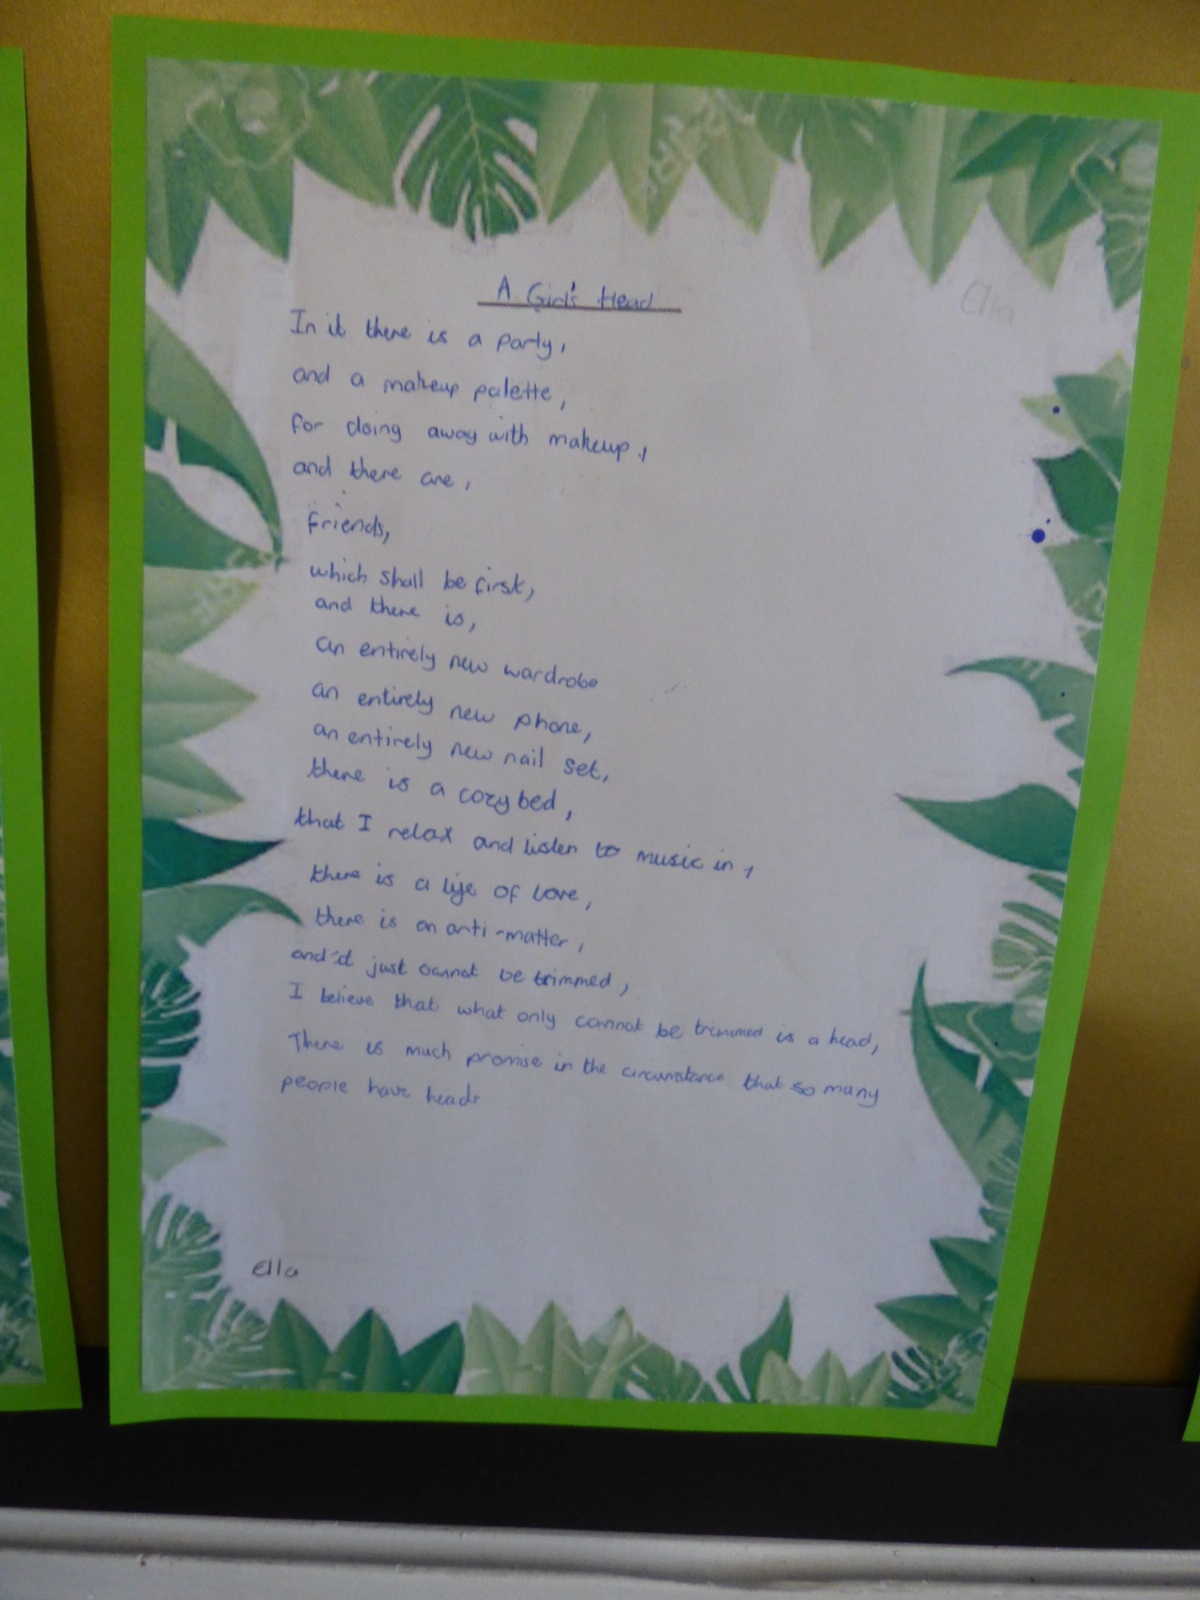 A Girl's Head
Ella
In it there is a party,
and a makeup palette,
for doing away with makeup,
and there are,
Friends,
which shall be first,
and there is,
an entirely new wardrobe
an entirely new phone,
an entirely new nail set,
there is a cozy bed,
that I relax and listen to music in,
there is a life of love,
there is an anti-matter,
and'd just cannot be trimmed,
I believe that what only cannot be trimmed is a head,
There is much promise in the circumstance that so many
people have heads
Ella